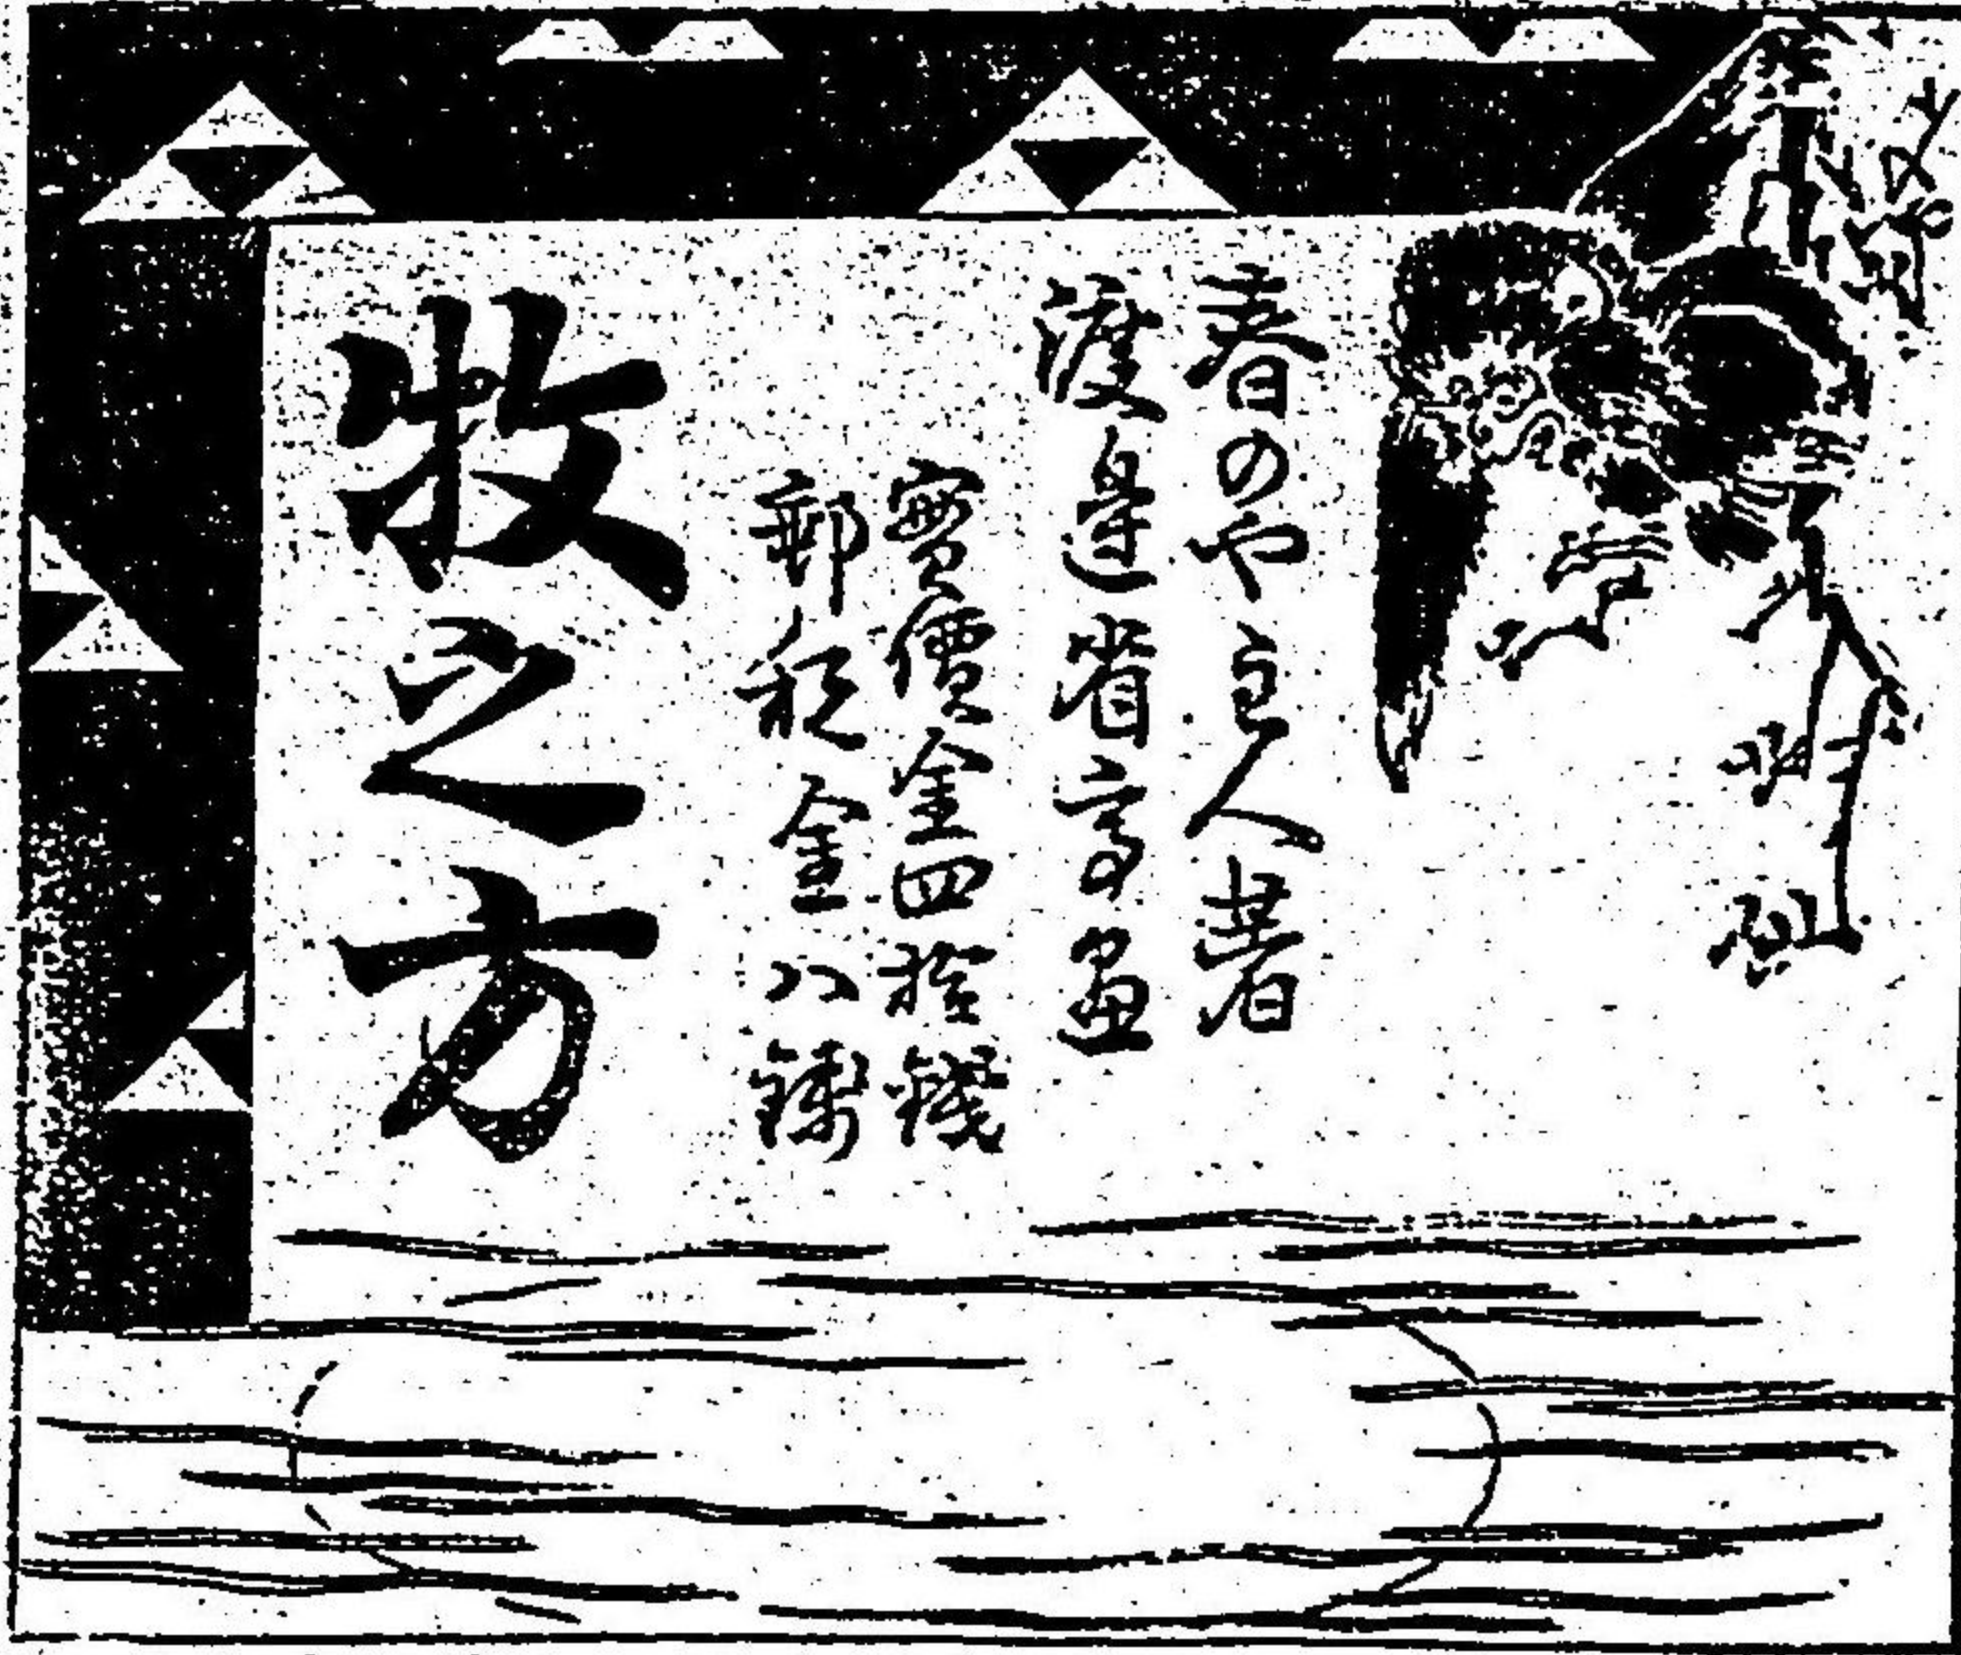 春のや主人著
渡邊省亭畫
實價金四拾錢
郵税金八錢
牧之方